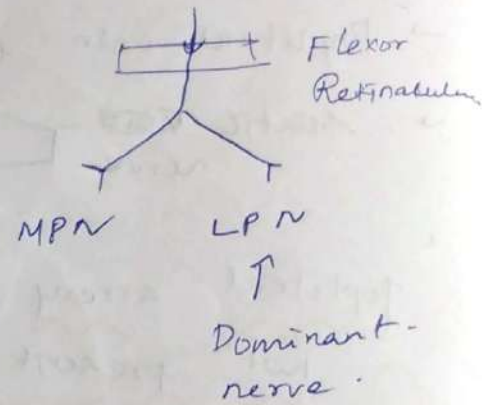 Flexor
Retinabulum
MPN LPN
Dominant-
nerve.